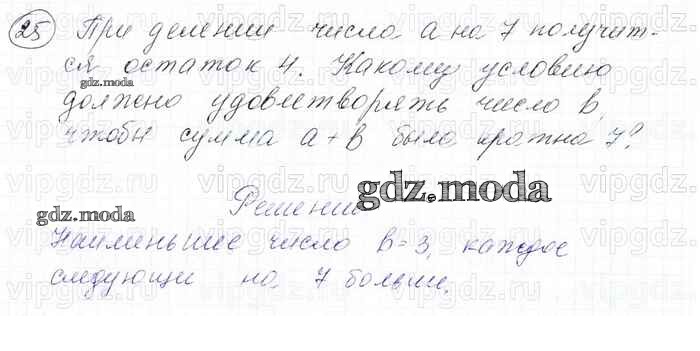 25 При делении числа a на 7 получит-
ся остаток 4. Какому условию
gdz.moda
должно удовлетворять число b,
чтобы сумма a + b была кратна 7?
gdz.moda
Решение
gdz.moda
Наименьшее число b = 3, каждое
следующи на 7 больше.